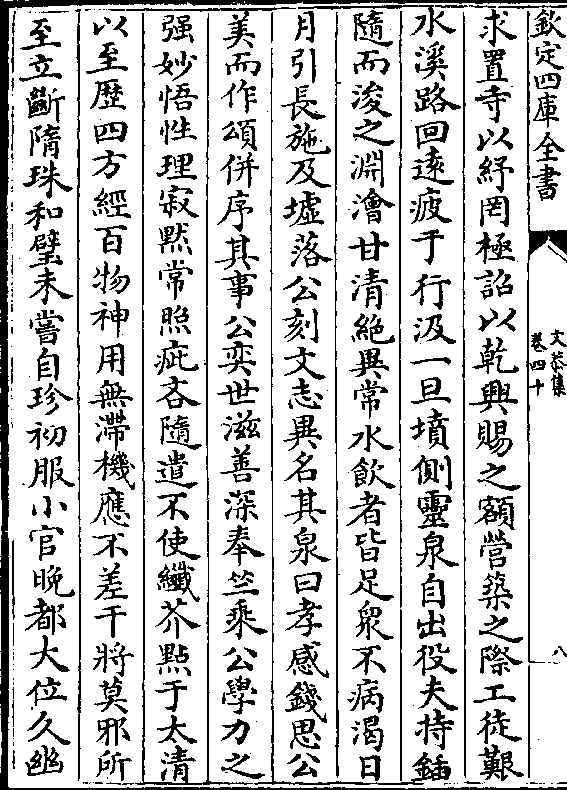 欽定四庫全書
文恭集
卷四十
八
求置寺以紓罔極詔以乾興賜之額營築之際工徒艱
水溪路回遠疲于行汲一旦墳側靈泉自出役夫持鍤
隨而浚之淵澮甘清絶異常水飲者皆足衆不病渴日
月引長施及墟落公刻文志異名其泉曰孝感錢思公
美而作頌併序其事公奕世滋善深奉竺乘公學力之
强妙悟性理寂默常照疵吝隨遣不使纖芥點于太清
以至歴四方經百物神用無滯機應不差干將莫邪所
至立斷隋珠和璧未嘗自珍初服小官晚都大位久幽